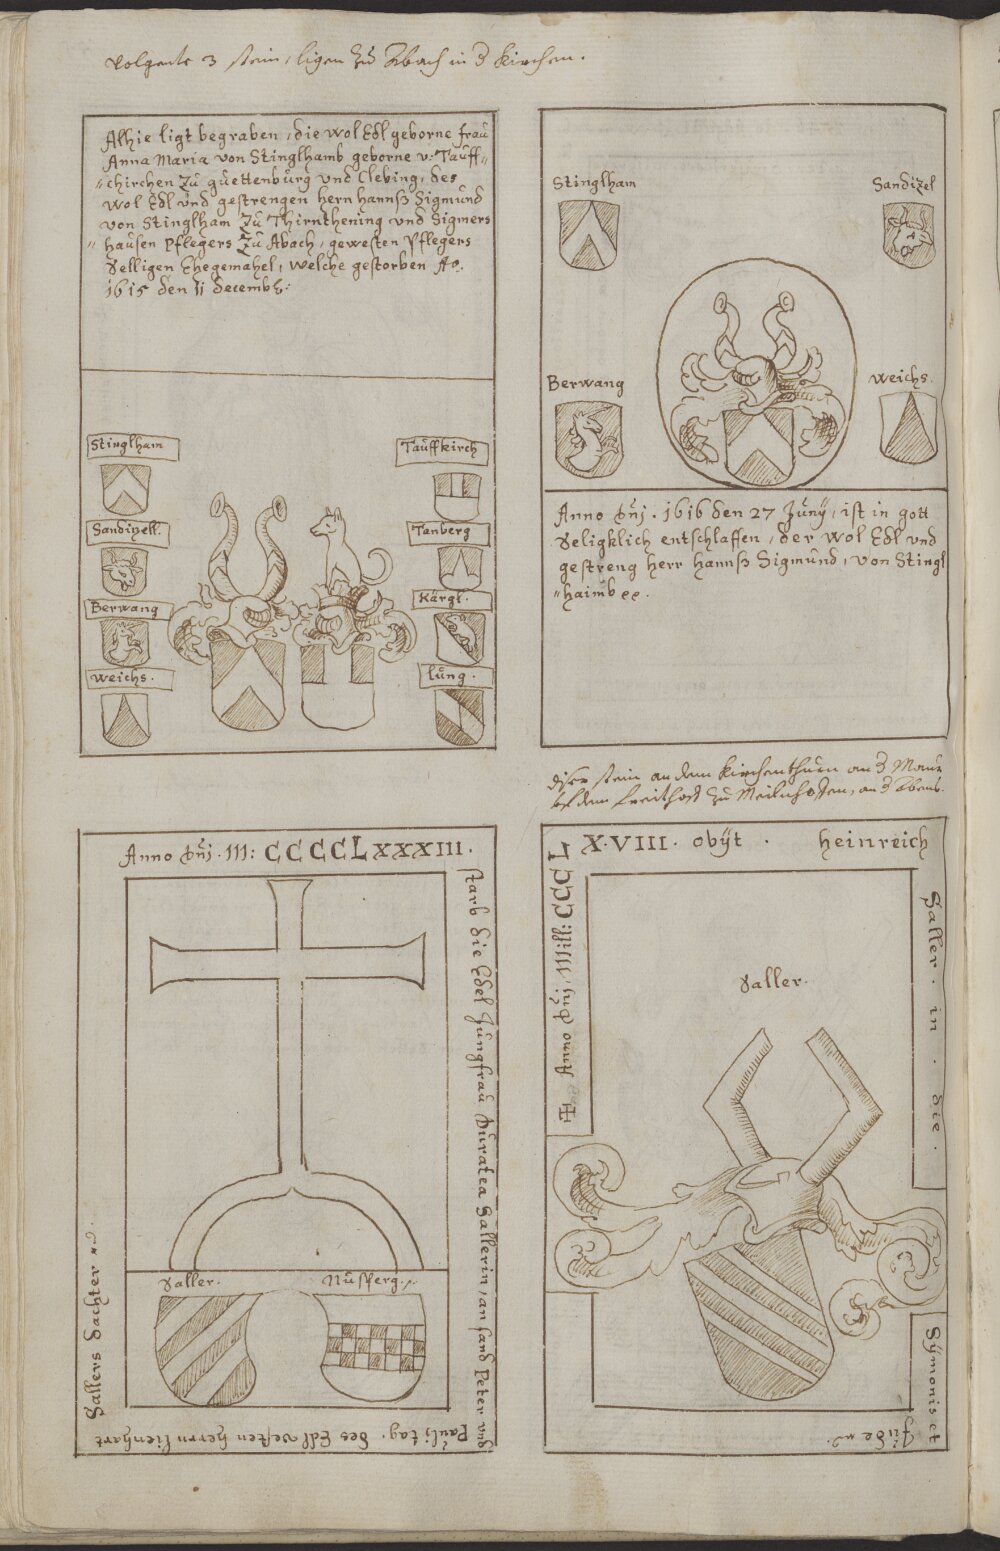 Volgente 3 stein, ligen zu Abach in d Kirchen.
Alhie ligt begraben, die Wol Edl geborne frau
Anna Maria von Stinglhamb geborne v: Tauff„
„chirchen Zu guettenburg vnd Clebing, des
Wol Edl vnd gestrengen hern hannß Sigmund
von Stinglham Zu Thirnthening vnd Sigmers
„hausen Pflegers Zu Abach, gewesten Pflegers
Selligen Ehegemahel, welche gestorben Ao.
1615 den 11 decemb:
Stinglham
Sandizell.
Berwang
Weichs.
Tauffkirch
Tanberg
Kärgl.
lung.
Stinglham
Sandizel
Berwang
Weichs.
Anno dnj. 1616 den 27 Junÿ, ist in gott
Seligklich entschlaffen, der Wol Edl vnd
gestreng herr hannß Sigmund, von Stingl
„haimb ee.
diser stein an dem Kirchenthurn an d Maur
auf dem freithoff zu Meilnhoffen, an d Abens.
Anno dnj. M: CCCCLXXXIII.
starb die Edel Jungfrau Duratea Sallerin, an sand Peter vnd
Pauls tag. des Edl vesten herrn lienhart
Sallers dachter
Saller.
Nusperg.
Anno dnj, Mill: CCCL
X.VIII. obÿt. heinreich
Saller. in. die.
Sÿmonis et
Jude
Saller.